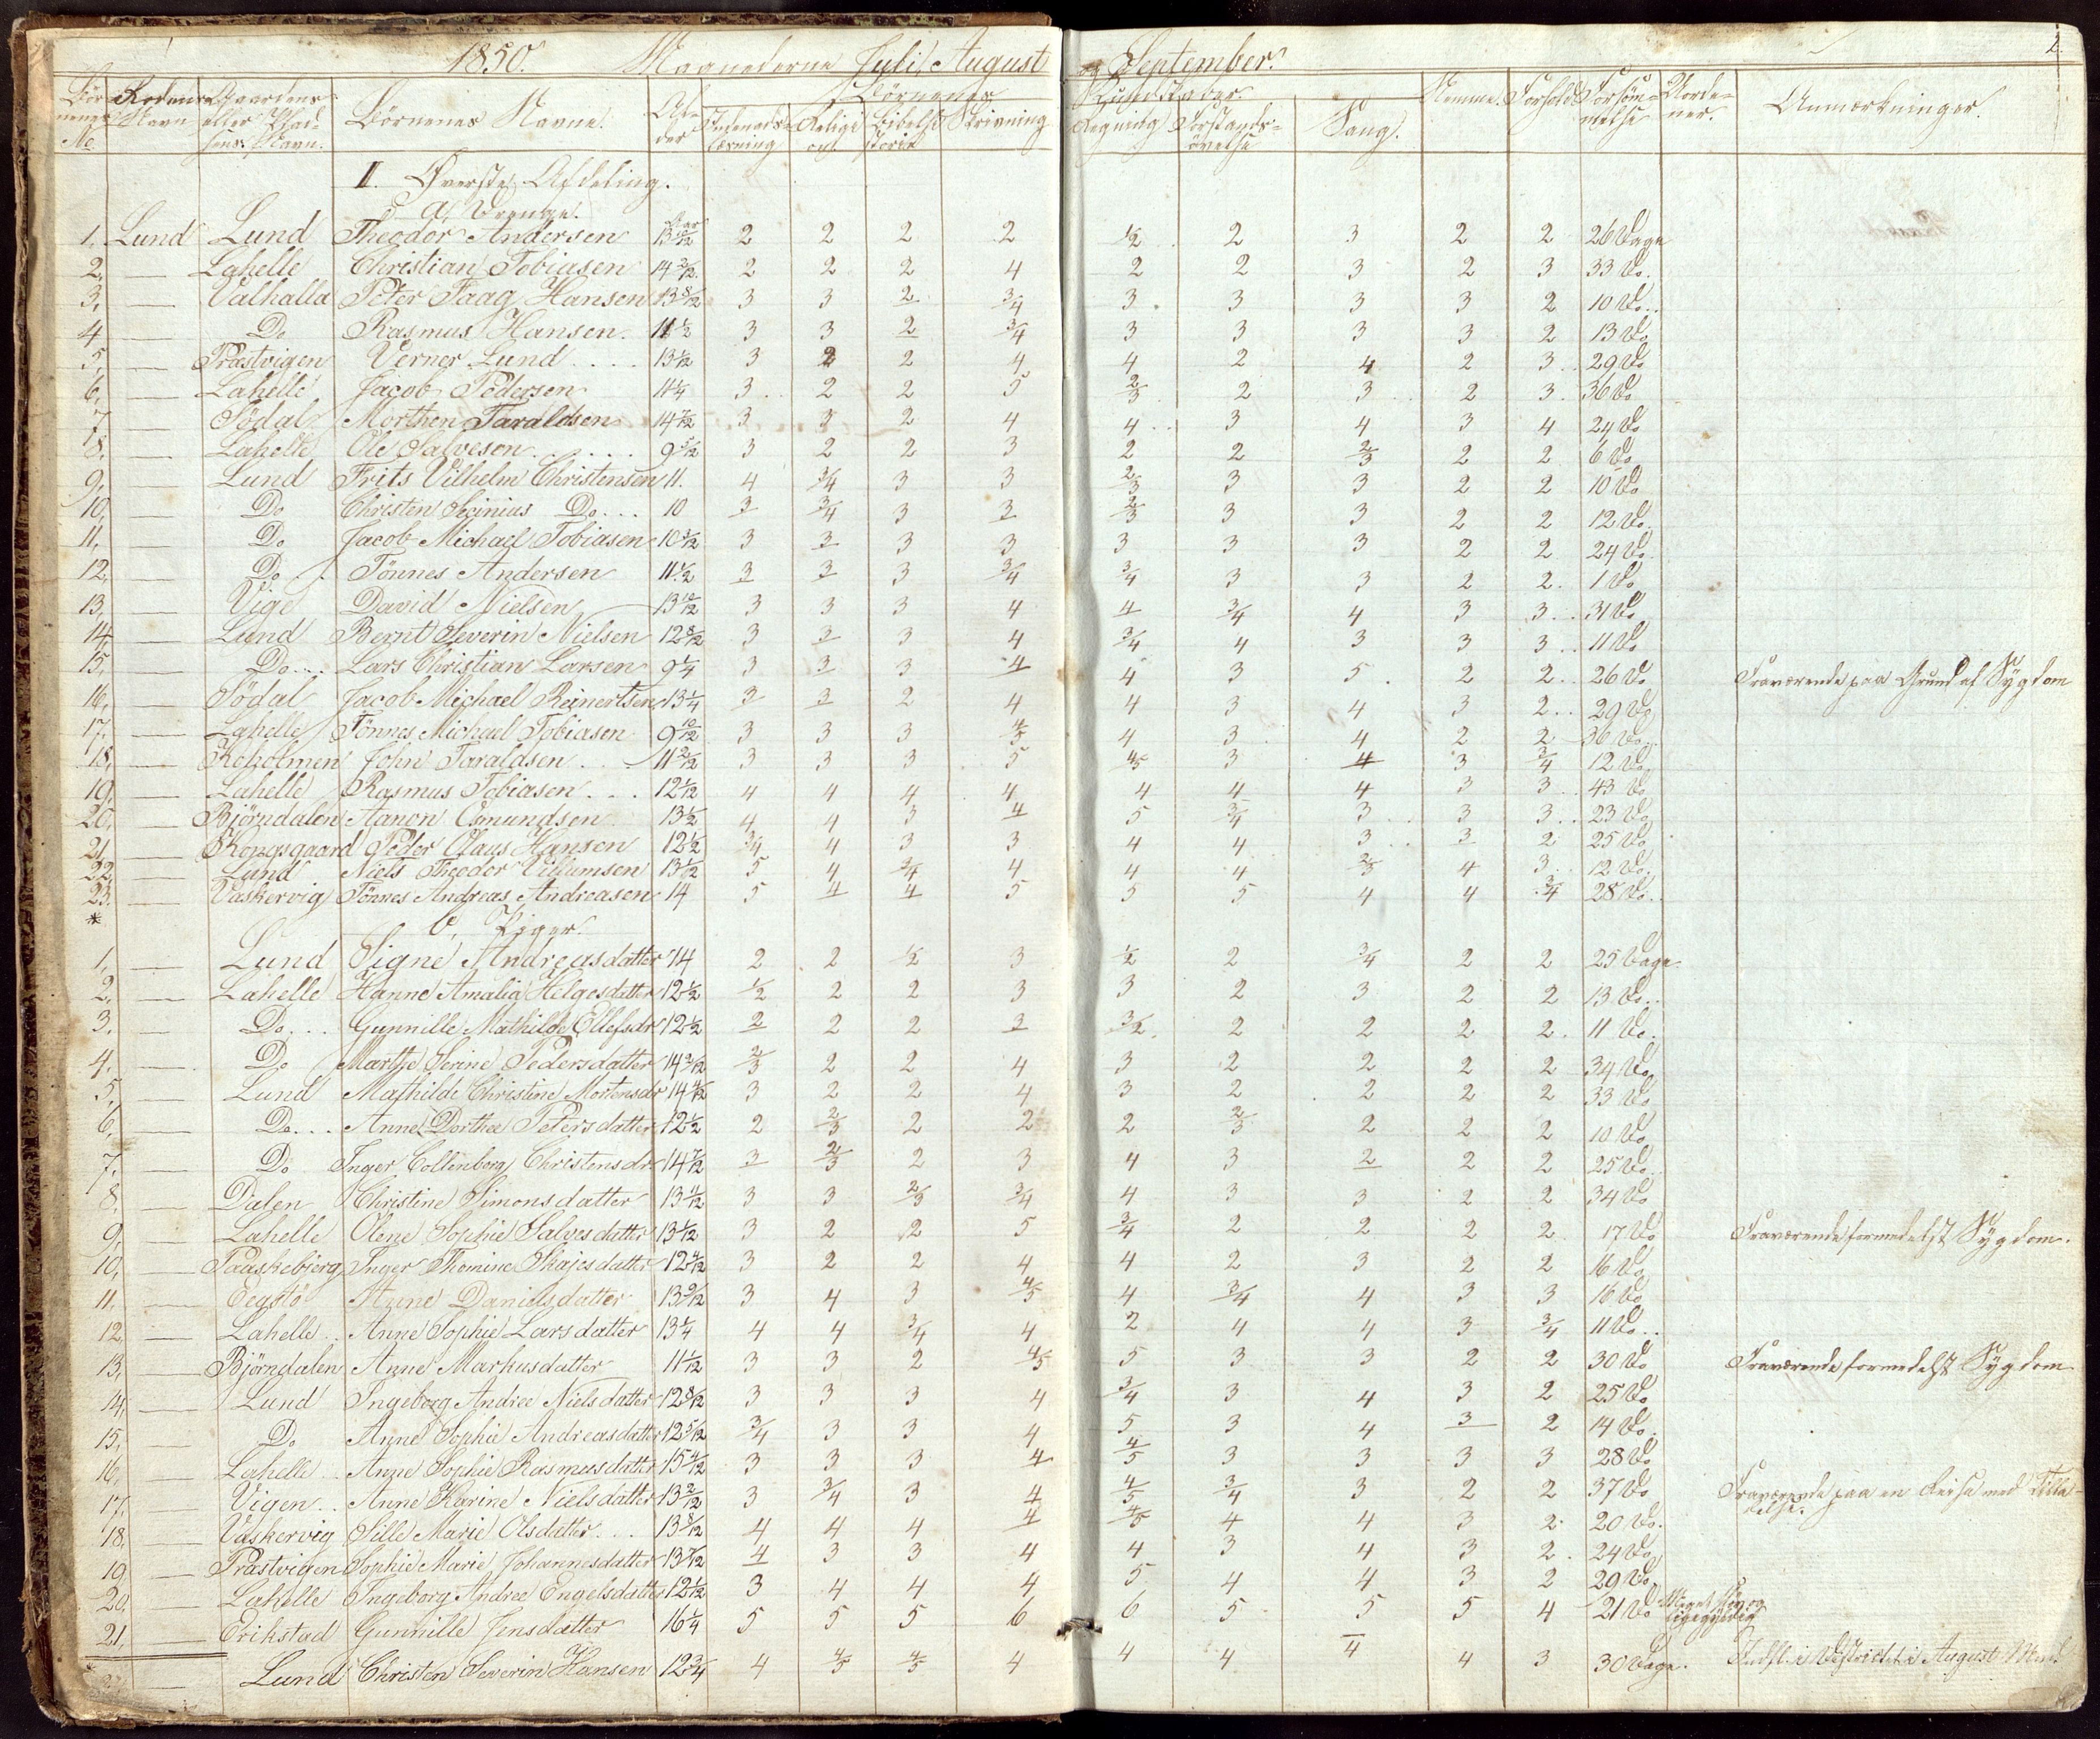 2
1850. Maanederne Juli, August og September.
Børnenes No Rodens Navn Gaardens eller Pladsens Navn. Børnenes Navne. Alder Børnenes Kundskaber. Nemme. Forhold. Forsømmelse Anmærkninger.
Indenadslæsning Religion Bibelhistorie Skrivning Regning Forstandsøvelse Sang.
II. Øverste Afdeling.
a, Drenge.
1. Lund Lund Theodor Andersen Aar 13 10/12 2 2 2 2 1/2 2 3 2 2 26 Dage
2, — Lahelle Christian Tobiasen 14 2/12 2 2 2 4 2 2 3 2 3 33 Do.
3, — Valhalla Peter Faag Hansen 13 8/12 3 3 2 3/4 3 3 3 3 2 10 Do..
4 — Do Rasmus Hansen. 11 1/2 3 3 2 3/4 3 3 3 3 2 13 Do
5, — Præstvigen Verner Lund.... 13 1/12 3 2 2 4 4 2 4 2 3 29 Do
6, — Lahelle Jacob Pedersen 11 1/4 3 2 2 5 2/3 2 3 2 3 36 Do
7 — Södal Morthen Taraldsen 14 7/12 3 3 2 4 4 3 4 3 4 24 Do
8, — Lahelle Ole Salveson...... 9 5/12 3 2 2 3 2 2 2/3 2 2 6 Do
9, — Lund Frits Vilhelm Christensen 11. 4 3/4 3 3 2/3 3 3 2 2 10 Do
10, — Do Christen Do... 10 3 3/4 3 3 2/3 3 3 2 2 12 Do.
11, — Do Jacob Michael Tobiasen 10 3/12 3 3 3 3 3 3 3 2 2 24 Do.
12, — Do Tönnes Andersen 11 1/2 3 3 3 3/4 3/4 3 3 2 2. 1 Do
13, — Vige David Nielsen 13 10/12 3 3 3 4 4 3/4 4 3 3.. 31 Do
14, — Lund Bernt Severin Nielsen 12 8/12 3 3 3 4 3/4 4 3 3 3.. 11 Do
15, — Do... Lars Christian Larsen 9 1/4 3 3 3 4 4 3 5 2 2.. 26 Do Fraværende paa Grund af Sygdom
16, — Södal Jacob Michael Reinertsen 13 1/4 3 3 2 4 4 3 4 3 2.. 29 Do
17. — Lahelle Tönnes Michael Tobiasen 9 10/12 3 3 3 4/5 4 3 4 2 2 36 Do..
18, — Keholmen John Taraldsen... 11 2/12 3 3 3 5 4/5 3 4 3 3/4 12 Do
19. — Lahelle Rasmus Tobiasen... 12 1/12 4 4 4 4 4 4 4 3 3.. 43 Do
20, — Björndalen Aanon Osmundsen 13 1/2 4 4 3 4 5 3/4 3 3 3.. 23 Do
21 — Kongsgaard Peder Claus Hansen 12 1/2 3/4 4 3 3 4 4 3 3 2 25 Do
22, — Lund Niels Theodor Villumsen 13 1/12 5 4 3/4 4 4 4 2/3 4 3 12 Do.
23. — Vaskervig Tönnes Andreas Andreasen 14 5 4 4 5 5 5 4 4 3/4 28 Do.
* b, Piger.
1, — Lund Signe Andreasdatter 14 2 2 1/2 3 1/2 2 3/4 2 2 25 Dage
2, — Lahelle Hanne Amalia Helgesdatter 12 1/2 1/2 2 2 3 3 2 3 2 2 13 Do..
3, — Do... Gunnille Mathilde Ellefsdr 12 1/2 2 2 2 3 3/2 2 2 2 2. 11 Do.
4, — Do Marthe Serine Pedersdatter 14 3/12 2/3 2 2 4 3 2 2 2 2 34 Do
5, — Lund Mathilde Christine Mortensdr 14 4/12 3 2 2 4 3 2 2 2 2 33 Do
6, — Do... Anne Dorthea Petersdatter 12 1/2 2 2/3 2 2 2 2/3 2 2 2 10 Do
7, — Do Inger Collenborg Christensdr 14 7/12 3 2/3 2 3 4 3 2 2 2 25 Do..
8, — Dalen Christine Simonsdatter 13 4/12 3 3 2/3 3/4 4 3 3 2 2 34 Do
9, — Lahelle Olene Sophie Salvesdatter 13 1/12 3 2 2 5 3/4 2 2 2 2. 17 Do Fraværende formedelst Sygdom.
10, — Paaskebjerg Inger Thomine Skajesdatter 12 4/12 3 2 2 4 4 2 3 2 2 16 Do
11. — Egstö Anne Danielsdatter 13 9/12 3 4 3 4/5 4 3/4 4 3 3 16 Do
12, — Lahelle.. Anne Sophie Larsdatter 13 1/4 4 4 3/4 4 2 4 4 3 3/4 11 Do..
13, — Björndalen Anne Markusdatter 11 1/12 3 3 2 4/5 5 3 3 2 2 30 Do Fraværende formedelst Sygdom
14, — Lund Ingeborg Andrea Nielsdatter 12 8/12 3 3 3 4 3/4 3 4 3 2 25 Do.
15, — Do Anne Sophie Andreasdatter 12 5/12 3/4 3 3 4 5 3 4 3 2 14 Do.
16, — Lahelle Anne Sophie Rasmusdatter 15 4/12 3 3 3 4 4/5 3 3 3 3 28 Do
17, — Vigen.. Anne Karine Nielsdatter 13 2/12 3 3/4 3 4 4/5 3/4 3 2 2 37 Do Fraværende paa en Reise med Tilladelse.
18, — Vaskervig Sille Marie Olsdatter... 13 8/12 4 4 4 4 4/5 4 4 3 2 20 Do.
19 — Præstvigen Sophie Marie Johannesdatter 13 7/12 4 3 3 4 4 3 4 3 2. 24 Do
20, — Lahelle Ingeborg Andrea Engelsdatter 12 1/12 3 4 4 4 5 4 4 3 2 29 Do
21, — Erikstad Gunnille Jensdatter 16 1/4 5 5 5 6 6 5 5 5 4 21 Do Meget sløv og ligegyldig
— Lund Christen Severin Hansen 12 3/4 4 4/5 4/5 4 4 4 4 4 3 30 Dage. Indfl. i Districtet i August Md.